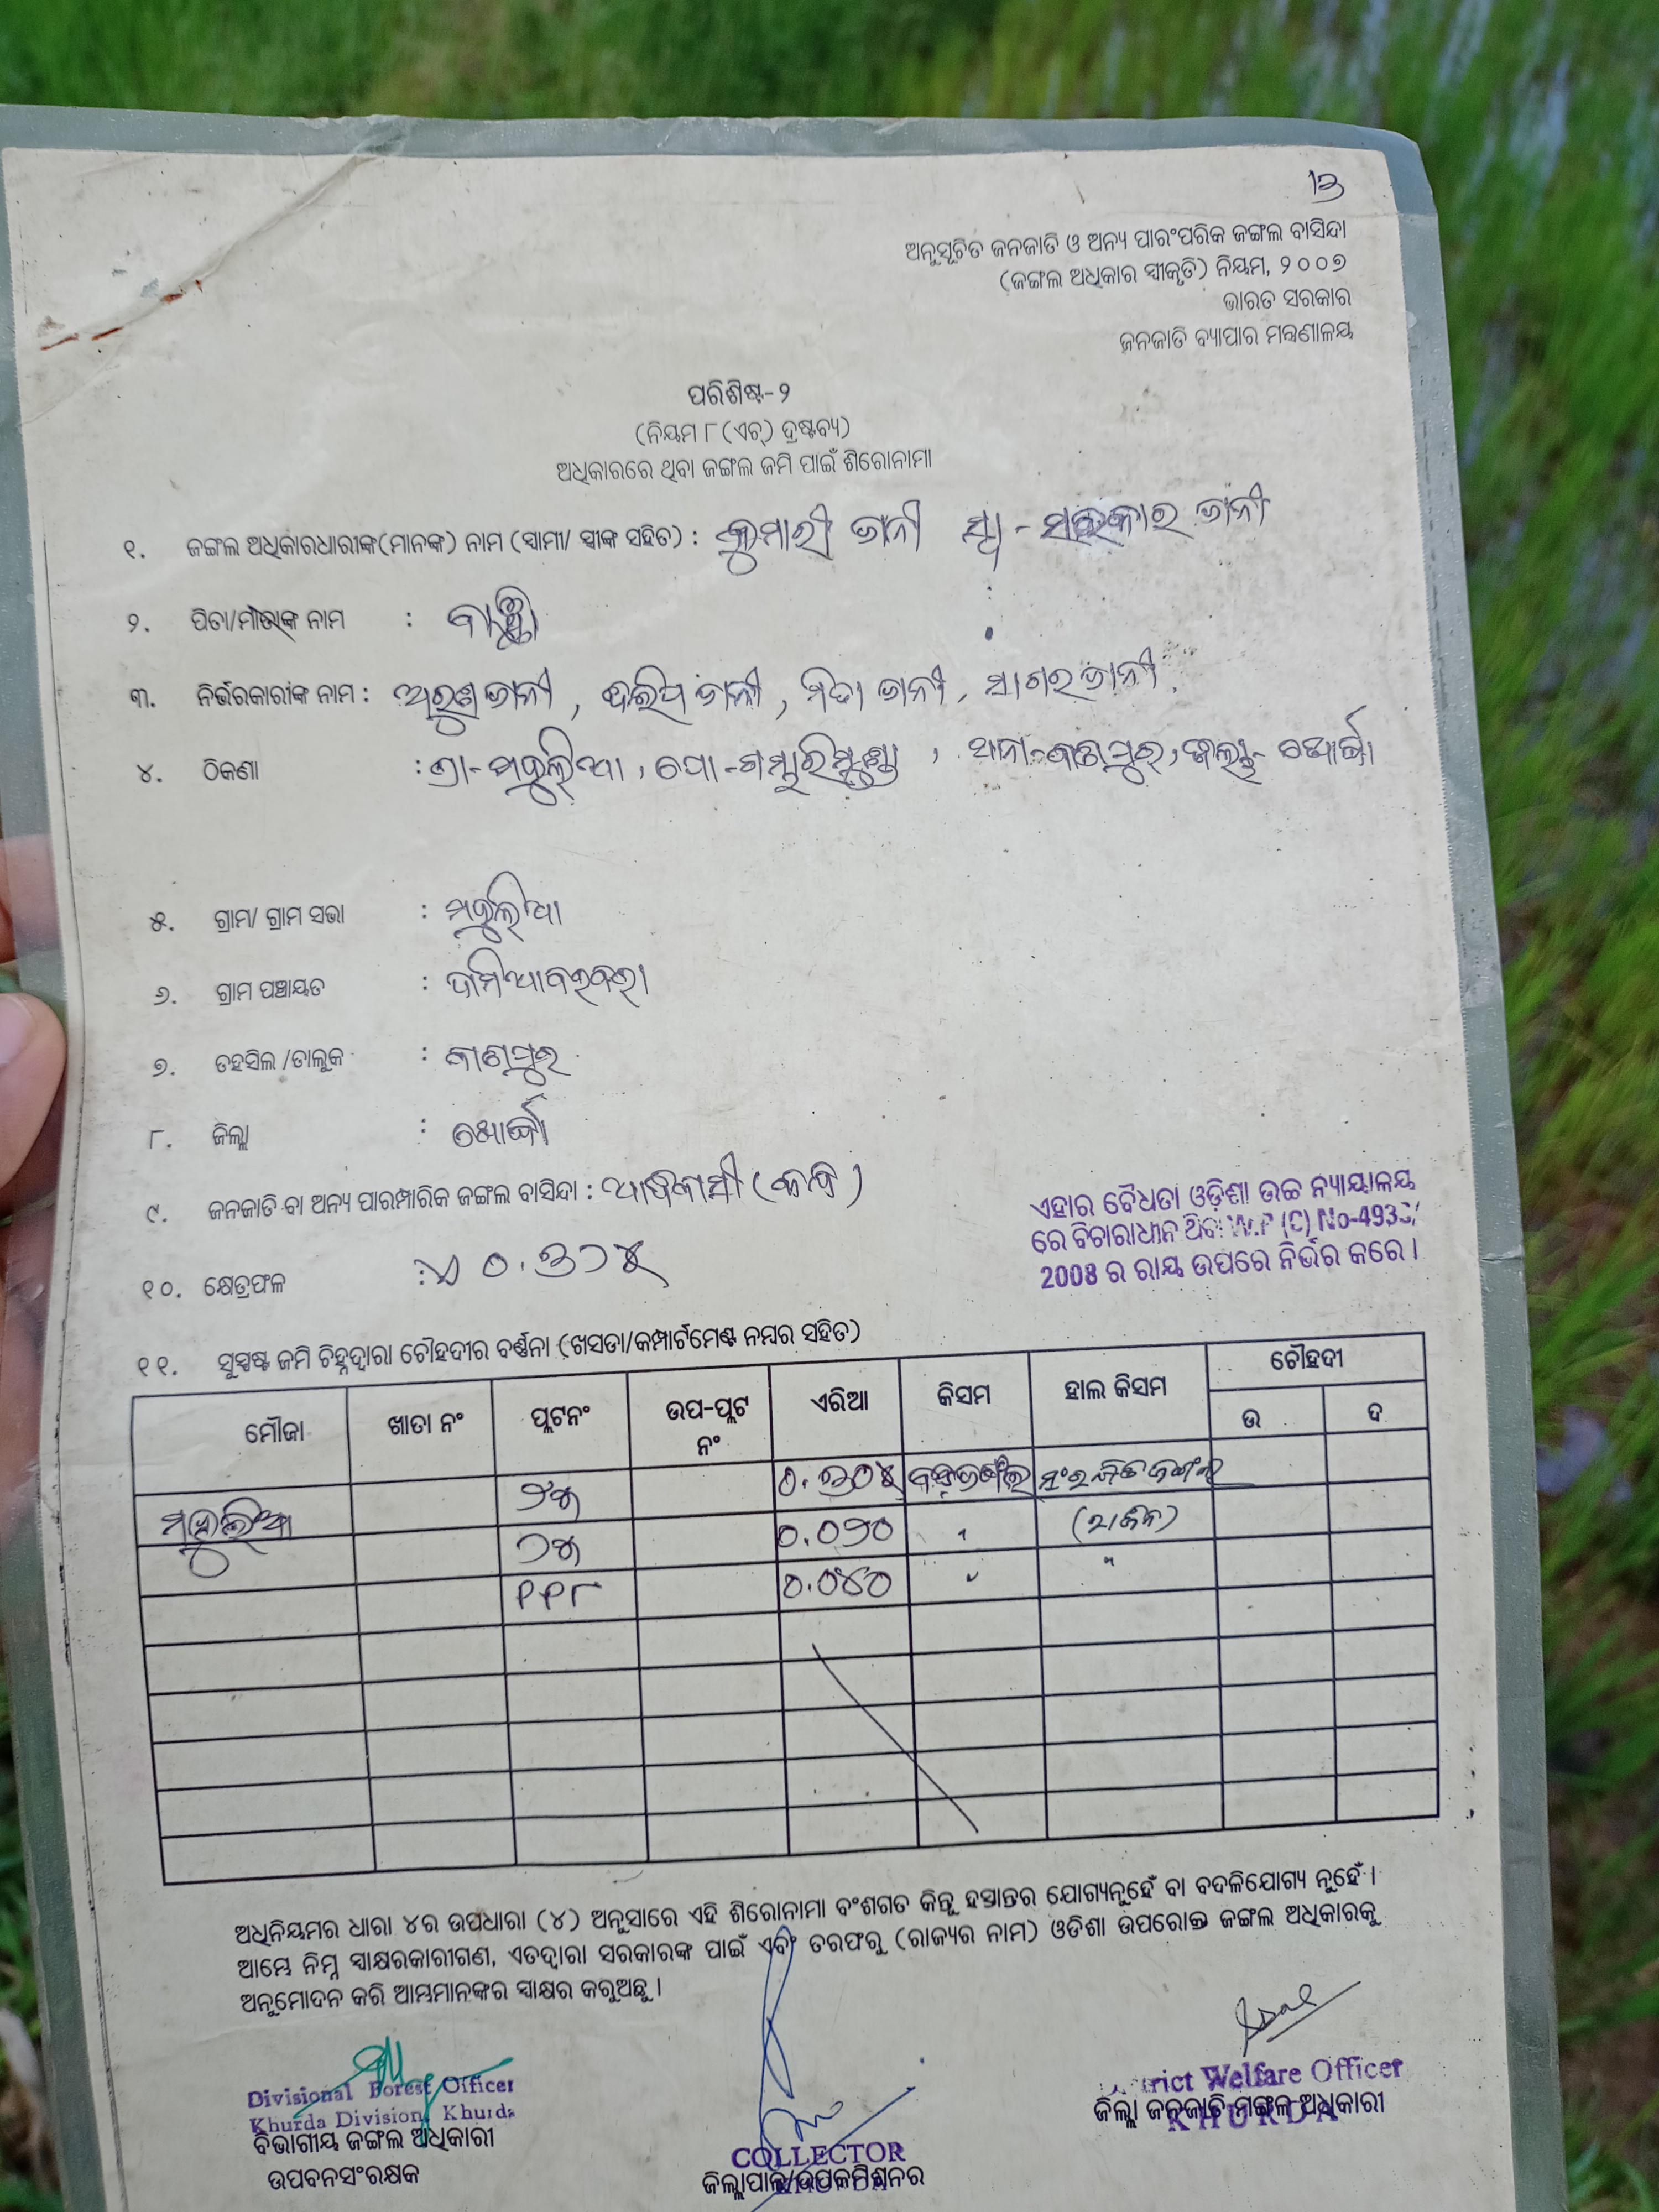 ୨୩
ଅନୁସୂଚିତ ଜନଜାତି ଓ ଅନ୍ୟ ପାରଂପରିକ ଜଙ୍ଗଲ ବାସିନ୍ଦା
(ଜଙ୍ଗଲ ଅଧିକାର ସ୍ୱୀକୃତି) ନିୟମ, ୨୦୦୭
ଭାରତ ସରକାର
ଜନଜାତି ବ୍ୟାପାର ମନ୍ତ୍ରଣାଳୟ
ପରିଶିଷ୍ଟ-୨
(ନିୟମ ୮(ଏଚ୍) ଦ୍ରଷ୍ଟବ୍ୟ)
ଅଧିକାରରେ ଥିବା ଜଙ୍ଗଲ ଜମି ପାଇଁ ଶିରୋନାମା
୧. ଜଙ୍ଗଲ ଅଧିକାରଧାରୀଙ୍କ(ମାନଙ୍କ) ନାମ (ସ୍ୱାମୀ/ ସ୍ତ୍ରୀଙ୍କ ସହିତ) : କୁମାରୀ ଜାନୀ ସ୍ୱା - ସରକାର ଜାନୀ
୨. ପିତା/ମାତାଙ୍କ ନାମ :
୩. ନିର୍ଭରକାରୀଙ୍କ ନାମ : ଅରୁଣ ଜାନୀ, ଦିଲିପ ଜାନୀ, ମିତା ଜାନୀ, ସାଗର ଜାନୀ
୪. ଠିକଣା : ଗ୍ରା- ମହୁଲିଆ, ପୋ-ଗମ୍ଭାରିମୁଣ୍ଡା, ଥାନା-ବାଣପୁର, ଜିଲ୍ଲା- ଖୋର୍ଦ୍ଧା
୫. ଗ୍ରାମ/ ଗ୍ରାମ ସଭା : ମହୁଲିଆ
୬. ଗ୍ରାମ ପଞ୍ଚାୟତ :
୭. ତହସିଲ /ତାଲୁକ : ବାଣପୁର
୮. ଜିଲ୍ଲା : ଖୋର୍ଦ୍ଧା
୯. ଜନଜାତି ବା ଅନ୍ୟ ପାରମ୍ପାରିକ ଜଙ୍ଗଲ ବାସିନ୍ଦା : ଆଦିବାସୀ (କନ୍ଧ)
ଏହାର ବୈଧତା ଓଡ଼ିଶା ଉଚ୍ଚ ନ୍ୟାୟାଳୟ
ରେ ବିଚାରାଧୀନ ଥିବା W.P (C) No-4933/
2008 ର ରାୟ ଉପରେ ନିର୍ଭର କରେ ।
୧୦. କ୍ଷେତ୍ରଫଳ : ୦.୩୬୪
୧୧. ସୁସ୍ପଷ୍ଟ ଜମି ଚିହ୍ନଦ୍ୱାରା ଚୌହଦୀର ବର୍ଣ୍ଣନା (ଖସଡା/କମ୍ପାର୍ଟମେଣ୍ଟ ନମ୍ବର ସହିତ)
ମୌଜା ଖାତା ନଂ ପ୍ଲଟନଂ ଉପ-ପ୍ଲଟ ନଂ ଏରିଆ କିସମ ହାଲ କିସମ ଚୌହଦୀ
ଉ ଦ
ମହୁଲିଆ ୦.୩୦୪
୦.୦୨୦ "
୧୧୮ ୦.୦୪୦ " "
ଅଧିନିୟମର ଧାରା ୪ର ଉପଧାରା (୪) ଅନୁସାରେ ଏହି ଶିରୋନାମା ବଂଶଗତ କିନ୍ତୁ ହସ୍ତାନ୍ତର ଯୋଗ୍ୟନୁହେଁ ବା ବଦଳିଯୋଗ୍ୟ ନୁହେଁ ।
ଆମ୍ଭେ ନିମ୍ନ ସ୍ୱାକ୍ଷରକାରୀଗଣ, ଏତଦ୍ୱାରା ସରକାରଙ୍କ ପାଇଁ ଏବଂ ତରଫରୁ (ରାଜ୍ୟର ନାମ) ଓଡିଶା ଉପରୋକ୍ତ ଜଙ୍ଗଲ ଅଧିକାରକୁ
ଅନୁମୋଦନ କରି ଆମ୍ଭମାନଙ୍କର ସ୍ୱାକ୍ଷର କରୁଅଛୁ ।
Divisional Forest Officer
Khurda Division, Khurda
ବିଭାଗୀୟ ଜଙ୍ଗଲ ଅଧିକାରୀ
ଉପବନସଂରକ୍ଷକ
COLLECTOR
ଜିଲ୍ଲାପାଳ/ଉପକମିଶ୍ନର
District Welfare Officer
ଜିଲ୍ଲା ଜନଜାତି ମଙ୍ଗଳ ଅଧିକାରୀ
KHURDA